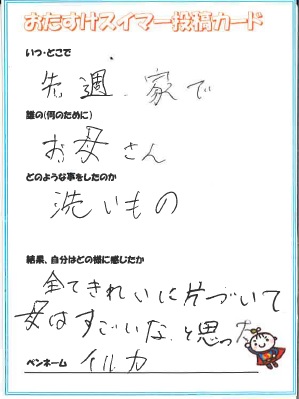 おたすけスイマー投稿カード
いつ・どこで
先週、家で
誰の(何のために)
お母さん
どのような事をしたのか
洗いもの
結果、自分はどの様に感じたか
全てきれいに片づいて
母はすごいな、と思った
ペンネーム イルカ